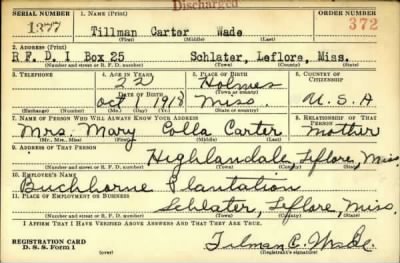 Discharged
SERIAL NUMBER 1. NAME (Print) ORDER NUMBER
1377 Tillman Carter Wade 372
(First) (Middle) (Last)
2. ADDRESS (Print)
R F. D. I Box 25 Schlater, Leflore, Miss.
(Number and street or R. F. D. number) (Town) (County) (State)
3. TELEPHONE 4. AGE IN YEARS 5. PLACE OF BIRTH 6. COUNTRY OF CITIZENSHIP
22 Holmes
DATE OF BIRTH (Town or county)
Oct 1 1918 Miss. U. S. A
(Exchange) (Number) (Mo.) (Day) (Yr.) (State or country)
7. NAME OF PERSON WHO WILL ALWAYS KNOW YOUR ADDRESS 8. RELATIONSHIP OF THAT PERSON
Mrs. Mary Colla Carter Mother
(Mr., Mrs., Miss) (First) (Middle) (Last)
9. ADDRESS OF THAT PERSON
Highlandale, Leflore, Miss.
(Number and street or R. F. D. number) (Town) (County) (State)
10. EMPLOYER'S NAME
Buchhorne Plantation
11. PLACE OF EMPLOYMENT OR BUSINESS
Schlater, Leflore, Miss.
(Number and street or R. F. D. number) (Town) (County) (State)
I AFFIRM THAT I HAVE VERIFIED ABOVE ANSWERS AND THAT THEY ARE TRUE.
REGISTRATION CARD
D. S. S. Form 1
Tilman C. Wade
(Registrant's signature)